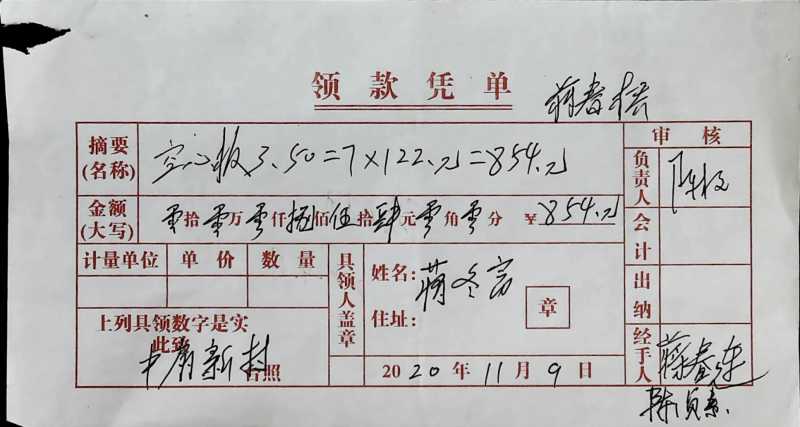 领款凭单
摘要(名称) 空心板3.50=7×122元=854元 审核
金额(大写) 零拾零万零仟捌佰伍拾肆元零角零分 ¥854元 负责人
计量单位 单价 数量 具领人盖章 姓名:蒋冬 会计
住址: 章 出纳
上列具领数字是实
此致
新村 台照 2020年11月9日 经手人 蒋春